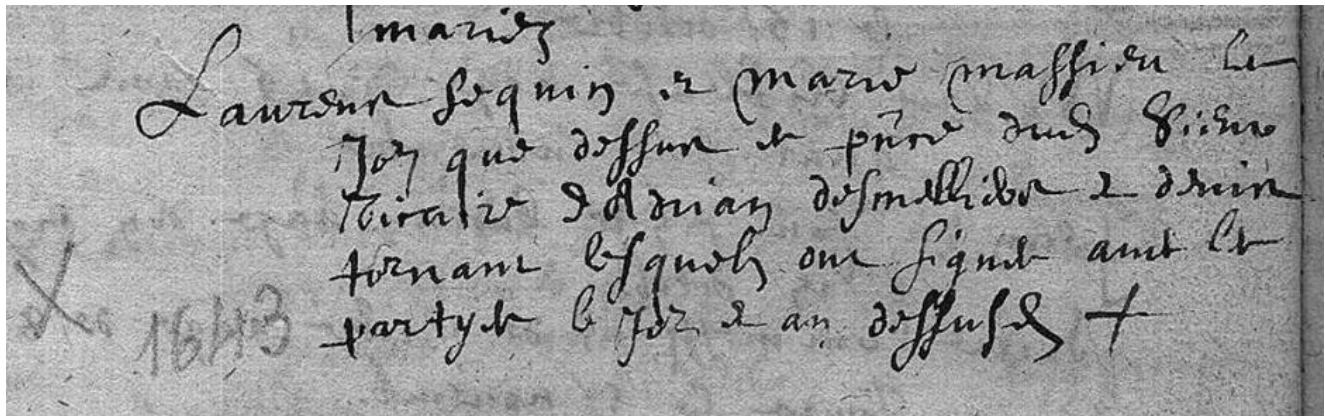 mariez
Laurens Sequin et Marie Massieu le
Jor que dessus et pnce dud Sieur
Vicaire d Adrian et denis
tornant lesquels ont signe avec les
partyes le Jor et an dessusd
1643